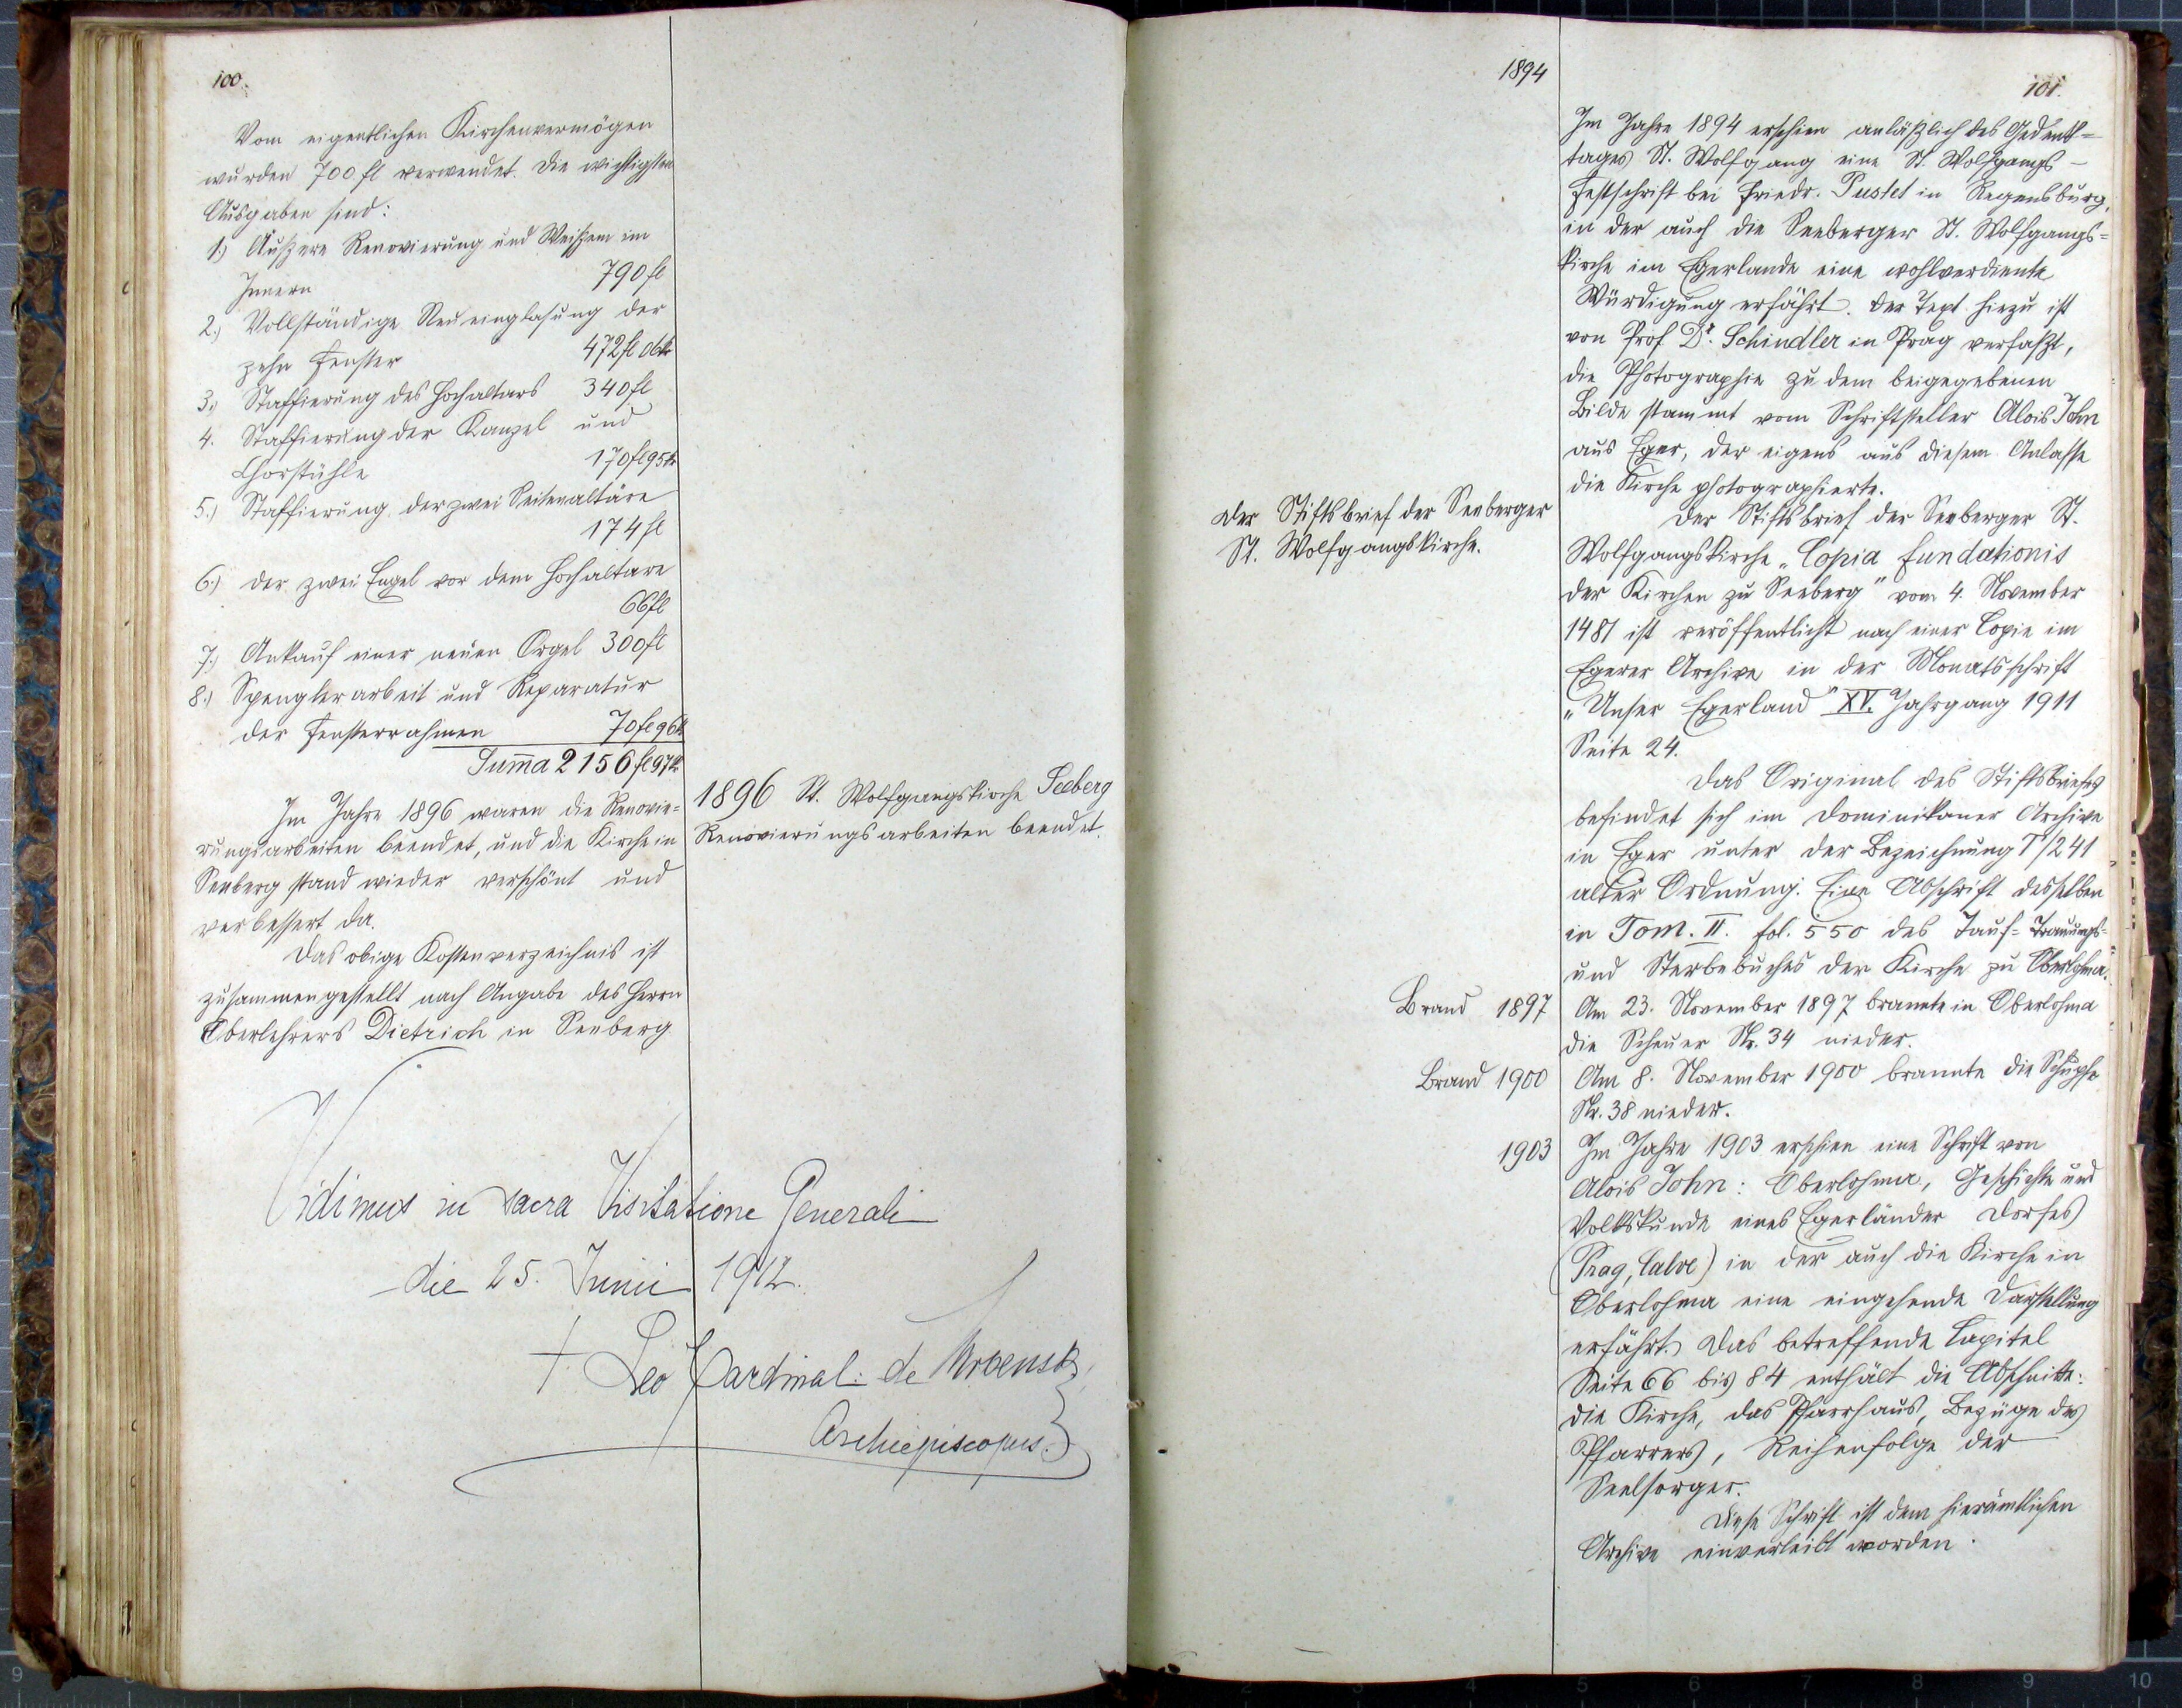 100.
Vom eigentlichen Kirchenvermögen
wurden 700 fl verwendet. Die wichtigsten
Ausgaben sind:
1.) Äußere Renovierung und Weißem im
Innern 790 fl
2.) Vollständige Neueinglasung der
zehn Fenster 472 fl 06 kr
3.) Staffierung des Hochaltars 340 fl
4. Staffierung der Kanzel und
Chorstühle 170 fl 95 kr
5.) Staffierung der zwei Seitenaltäre
174 fl
6.) der zwei Engel vor dem Hochaltare
66 fl
7.) Ankauf einer neuen Orgel 300 fl
8.) Spenglerarbeit und Reparatur
der Fensterrahmen 70 fl 96 kr
Summa 2156 fl 97 kr
Im Jahre 1896 waren die Renovie-
rungsarbeiten beendet, und die Kirche in
Seeberg stand wieder verschönt und
verbessert da.
Das obige Kostenverzeichnis ist
zusammengestellt nach Angabe des Herrn
Oberlehrers Dietrich in Seeberg
1896 St. Wolfgangskirche Seeberg
Renovierungsarbeiten beendet.
Vidimus in sacra Visitatione Generali
die 25. Junii 1912.
+ Leo Cardinal: de Skrbensky
Archiepiscopus.
1894
101.
Im Jahre 1894 erschien anläßlich des Gedenk-
tages St. Wolfgang eine St. Wolfgangs-
Festschrift bei Friedr. Pustet in Regensburg,
in der auch die Seeberger St. Wolfgangs-
kirche im Egerlande eine wohlverdiente
Würdigung erfährt. Der Text hiezu ist
von Prof. Dr. Schindler in Prag verfaßt,
die Photographie zu dem beigegebenen
Bilde stammt vom Schriftsteller Alois John
aus Eger, der eigens aus diesem Anlasse
die Kirche photographierte.
Der Stiftsbrief der Seeberger
St. Wolfgangskirche.
Der Stiftsbrief der Seeberger St.
Wolfgangskirche „Copia fundationis
der Kirchen zu Seeberg" vom 4. November
1481 ist veröffentlicht nach einer Copie im
Egerer Archive in der Monatsschrift
„Unser Egerland" XV. Jahrgang 1911
Seite 24.
Das Original des Stiftsbriefes
befindet sich im Dominikaner Archive
in Eger unter der Bezeichnung T/241
alter Ordnung. Eine Abschrift desselben
in Tom. II. fol. 550 des Tauf- Trauungs-
und Sterbebuches der Kirche zu Oberlohma.
Brand 1897
Am 23. November 1897 brannte in Oberlohma
die Scheuer Nr. 34 nieder.
Brand 1900
Am 8. November 1900 brannte die Schupfe
Nr. 38 nieder.
1903
Im Jahre 1903 erschien eine Schrift von
Alois John: Oberlohma, Geschichte und
Volkskunde eines Egerländer Dorfes
(Prag, Calve) in der auch die Kirche in
Oberlohma eine eingehende Darstellung
erfährt. Das betreffende Capitel
Seite 66 bis 84 enthält die Abschnitte:
die Kirche, das Pfarrhaus, Bezüge des
Pfarrers, Reihenfolge der
Seelsorger.
Diese Schrift ist dem hierämtlichen
Archive einverleibt worden.